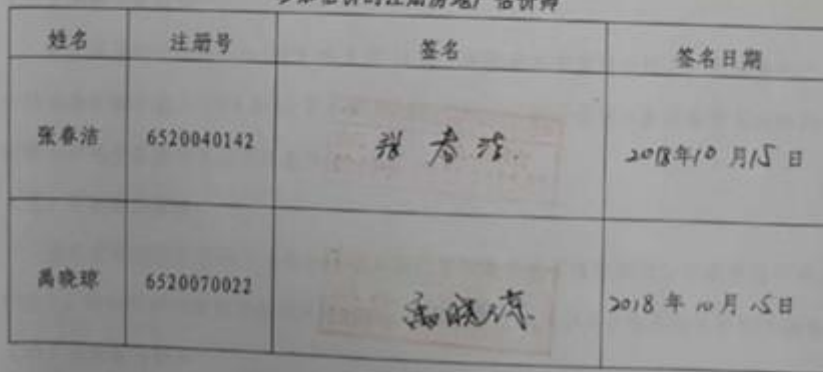 参加估价的注册房地产估价师
姓名 注册号 签名 签名日期
张春洁 6520040142 张春洁 2018年10月15日
禹晓琼 6520070022 禹晓琼 2018年10月15日